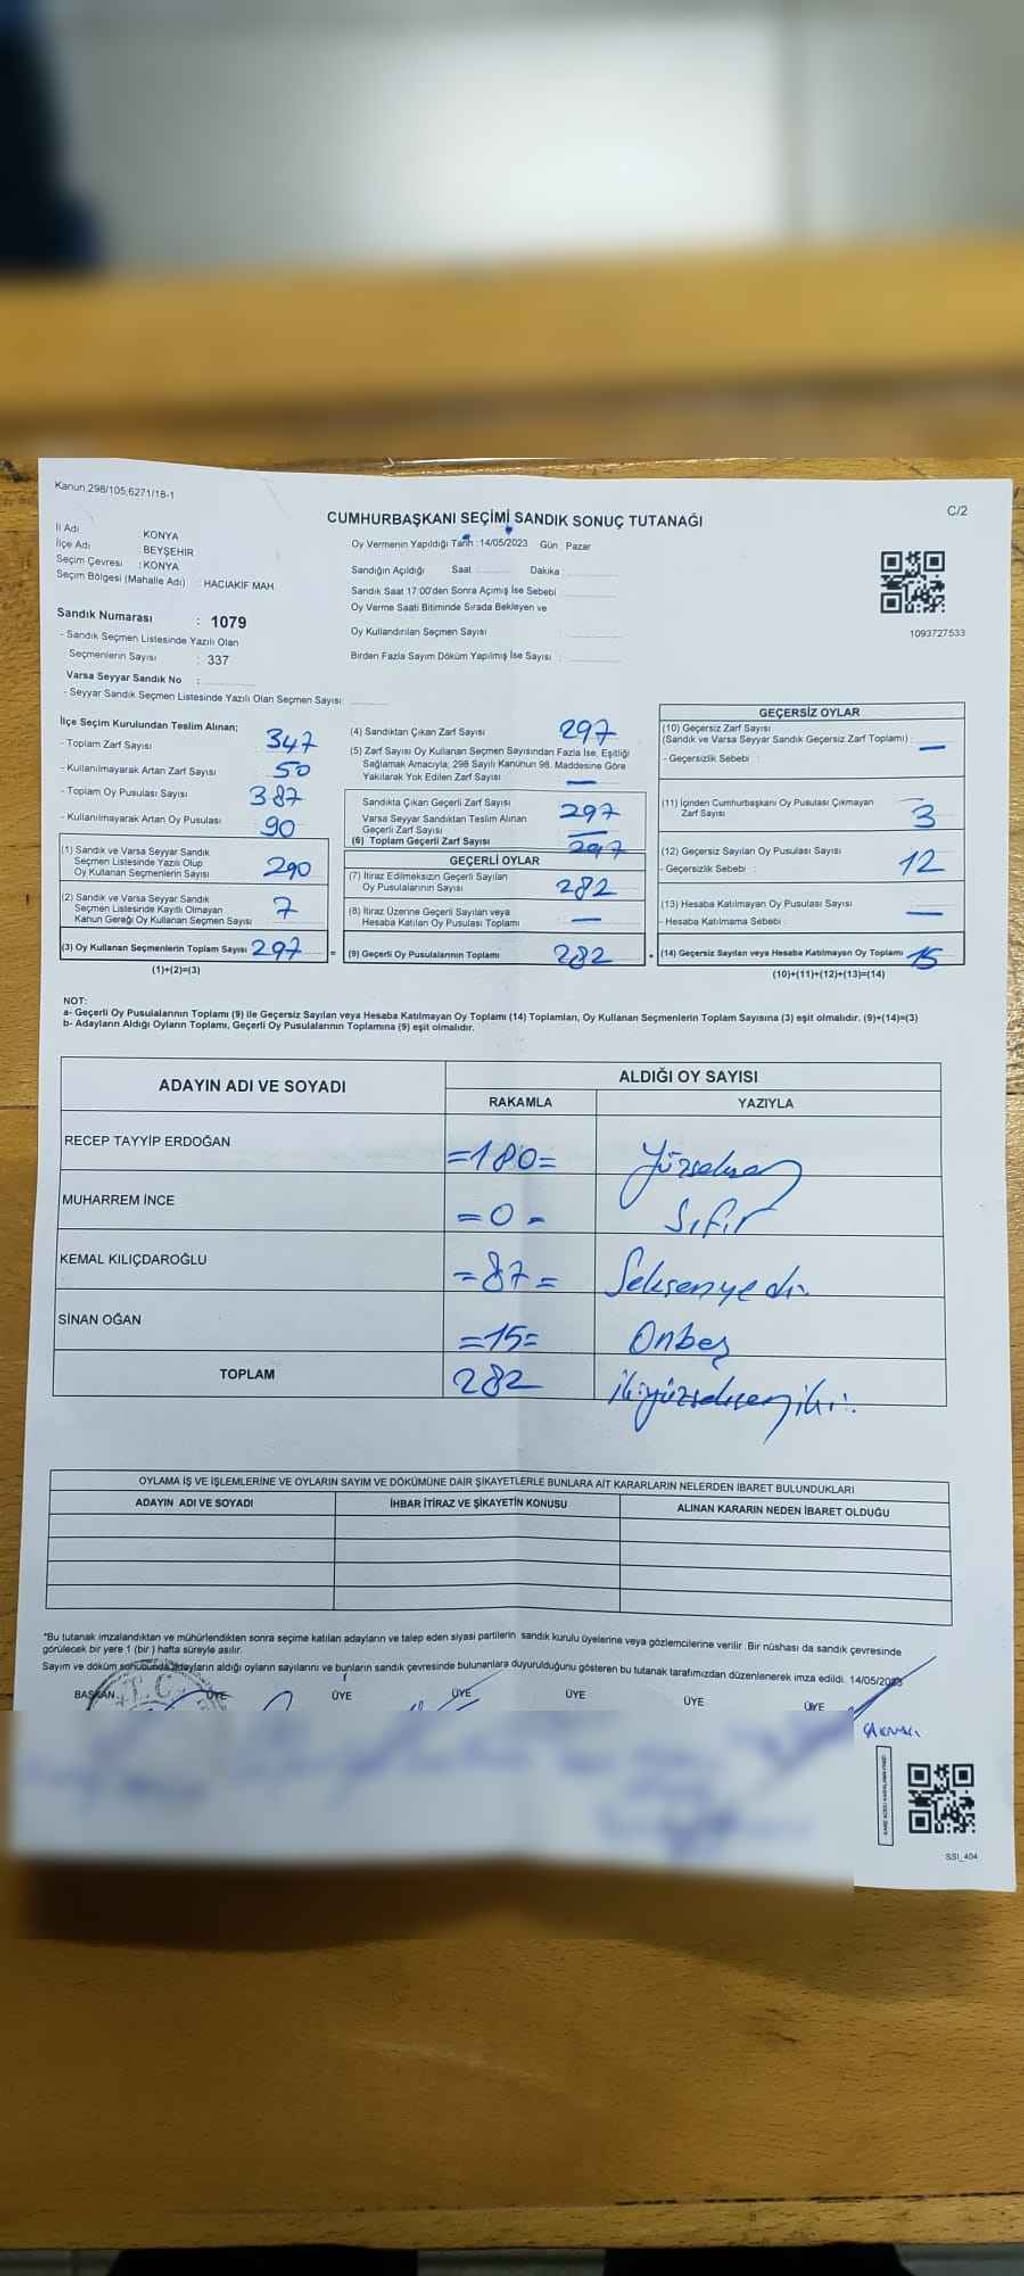 Kanun 298/105,6271/18-1
C/2
CUMHURBAŞKANI SEÇİMİ SANDIK SONUÇ TUTANAĞI
İl Adı KONYA
İlçe Adı BEYŞEHİR
Seçim Çevresi : KONYA
Seçim Bölgesi (Mahalle Adı) : HACIAKİF MAH.
Oy Vermenin Yapıldığı Tarih : 14/05/2023 Gün : Pazar
Sandığın Açıldığı Saat Dakika
Sandık Saat 17:00'den Sonra Açımış İse Sebebi
Oy Verme Saati Bitiminde Sırada Bekleyen ve
Oy Kullandırılan Seçmen Sayısı
Birden Fazla Sayım Döküm Yapılmış İse Sayısı
1093727533
Sandık Numarası : 1079
- Sandık Seçmen Listesinde Yazılı Olan
Seçmenlerin Sayısı : 337
Varsa Seyyar Sandık No :
- Seyyar Sandık Seçmen Listesinde Yazılı Olan Seçmen Sayısı
İlçe Seçim Kurulundan Teslim Alınan;
- Toplam Zarf Sayısı 347
- Kullanılmayarak Artan Zarf Sayısı 50
- Toplam Oy Pusulası Sayısı 387
- Kullanılmayarak Artan Oy Pusulası 90
(1) Sandık ve Varsa Seyyar Sandık
Seçmen Listesinde Yazılı Olup
Oy Kullanan Seçmenlerin Sayısı 290
(2) Sandık ve Varsa Seyyar Sandık
Seçmen Listesinde Kayıtlı Olmayan
Kanun Gereği Oy Kullanan Seçmen Sayısı 7
(3) Oy Kullanan Seçmenlerin Toplam Sayısı 297 =
(1)+(2)=(3)
(4) Sandıktan Çıkan Zarf Sayısı 297
(5) Zarf Sayısı Oy Kullanan Seçmen Sayısından Fazla İse, Eşitliği
Sağlamak Amacıyla; 298 Sayılı Kanunun 98. Maddesine Göre
Yakılarak Yok Edilen Zarf Sayısı —
Sandıkta Çıkan Geçerli Zarf Sayısı 297
Varsa Seyyar Sandıktan Teslim Alınan
Geçerli Zarf Sayısı —
(6) Toplam Geçerli Zarf Sayısı 297
GEÇERLİ OYLAR
(7) İtiraz Edilmeksizin Geçerli Sayılan
Oy Pusulalarının Sayısı 282
(8) İtiraz Üzerine Geçerli Sayılan veya
Hesaba Katılan Oy Pusulası Toplamı —
(9) Geçerli Oy Pusulalarının Toplamı 282 +
GEÇERSİZ OYLAR
(10) Geçersiz Zarf Sayısı
(Sandık ve Varsa Seyyar Sandık Geçersiz Zarf Toplamı) —
- Geçersizlik Sebebi :
(11) İçinden Cumhurbaşkanı Oy Pusulası Çıkmayan
Zarf Sayısı 3
(12) Geçersiz Sayılan Oy Pusulası Sayısı 12
- Geçersizlik Sebebi :
(13) Hesaba Katılmayan Oy Pusulası Sayısı —
- Hesaba Katılmama Sebebi
(14) Geçersiz Sayılan veya Hesaba Katılmayan Oy Toplamı 15
(10)+(11)+(12)+(13)=(14)
NOT:
a- Geçerli Oy Pusulalarının Toplamı (9) ile Geçersiz Sayılan veya Hesaba Katılmayan Oy Toplamı (14) Toplamları, Oy Kullanan Seçmenlerin Toplam Sayısına (3) eşit olmalıdır. (9)+(14)=(3)
b- Adayların Aldığı Oyların Toplamı, Geçerli Oy Pusulalarının Toplamına (9) eşit olmalıdır.
ADAYIN ADI VE SOYADI ALDIĞI OY SAYISI
RAKAMLA YAZIYLA
RECEP TAYYİP ERDOĞAN =180= Yüzseksen
MUHARREM İNCE =0= Sıfır
KEMAL KILIÇDAROĞLU =87= Seksenyedi
SİNAN OĞAN =15= Onbeş
TOPLAM 282 ikiyüzsekseniki
OYLAMA İŞ VE İŞLEMLERİNE VE OYLARIN SAYIM VE DÖKÜMÜNE DAİR ŞİKAYETLERLE BUNLARA AİT KARARLARIN NELERDEN İBARET BULUNDUKLARI
ADAYIN ADI VE SOYADI İHBAR İTİRAZ VE ŞİKAYETİN KONUSU ALINAN KARARIN NEDEN İBARET OLDUĞU
*Bu tutanak imzalandıktan ve mühürlendikten sonra seçime katılan adayların ve talep eden siyasi partilerin sandık kurulu üyelerine veya gözlemcilerine verilir. Bir nüshası da sandık çevresinde
görülecek bir yere 1 (bir) hafta süreyle asılır.
Sayım ve döküm sonucunda adayların aldığı oyların sayılarını ve bunların sandık çevresinde bulunanlara duyurulduğunu gösteren bu tutanak tarafımızdan düzenlenerek imza edildi. 14/05/2023
BAŞKAN ÜYE ÜYE ÜYE ÜYE ÜYE ÜYE
T.C.
SSI_404